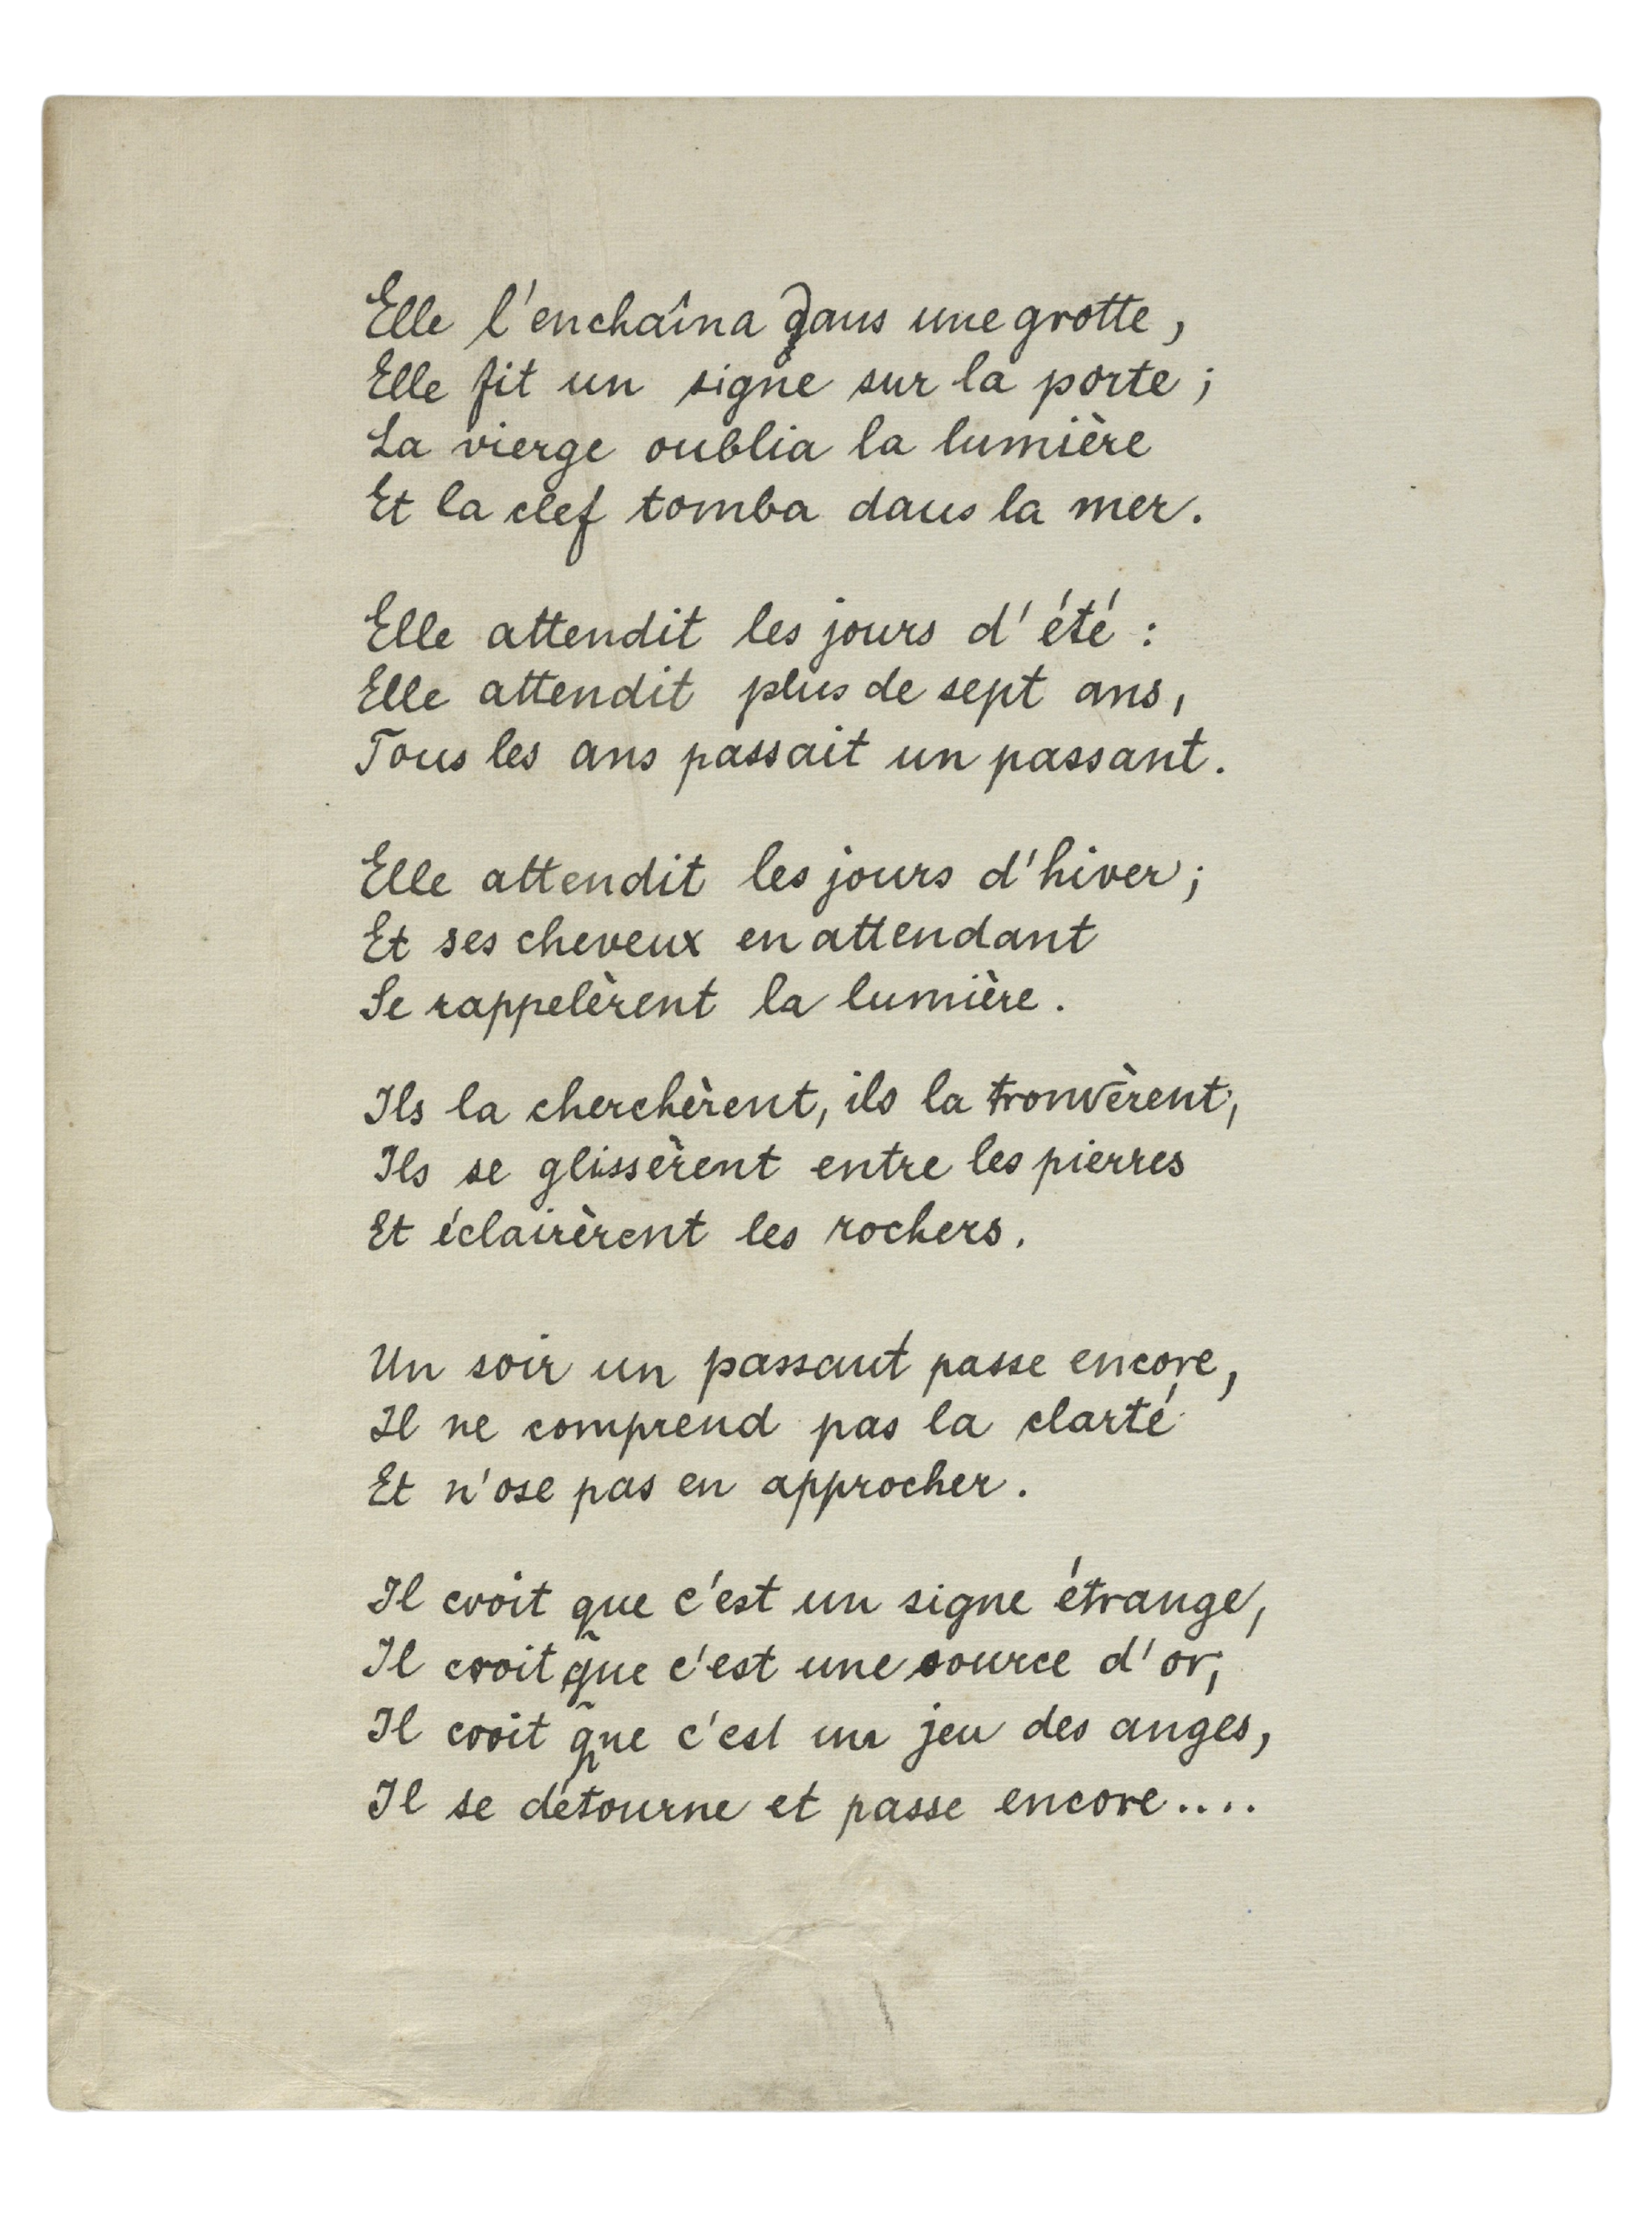 Elle l'enchaîna dans une grotte,
Elle fit un signe sur la porte ;
La vierge oublia la lumière
Et la clef tomba dans la mer.
Elle attendit les jours d'été :
Elle attendit plus de sept ans,
Tous les ans passait un passant.
Elle attendit les jours d'hiver ;
Et ses cheveux en attendant
Se rappelèrent la lumière.
Ils la cherchèrent, ils la trouvèrent,
Ils se glissèrent entre les pierres
Et éclairèrent les rochers.
Un soir un passant passe encore,
Il ne comprend pas la clarté
Et n'ose pas en approcher.
Il croit que c'est un signe étrange,
Il croit que c'est une source d'or,
Il croit que c'est un jeu des anges,
Il se détourne et passe encore....